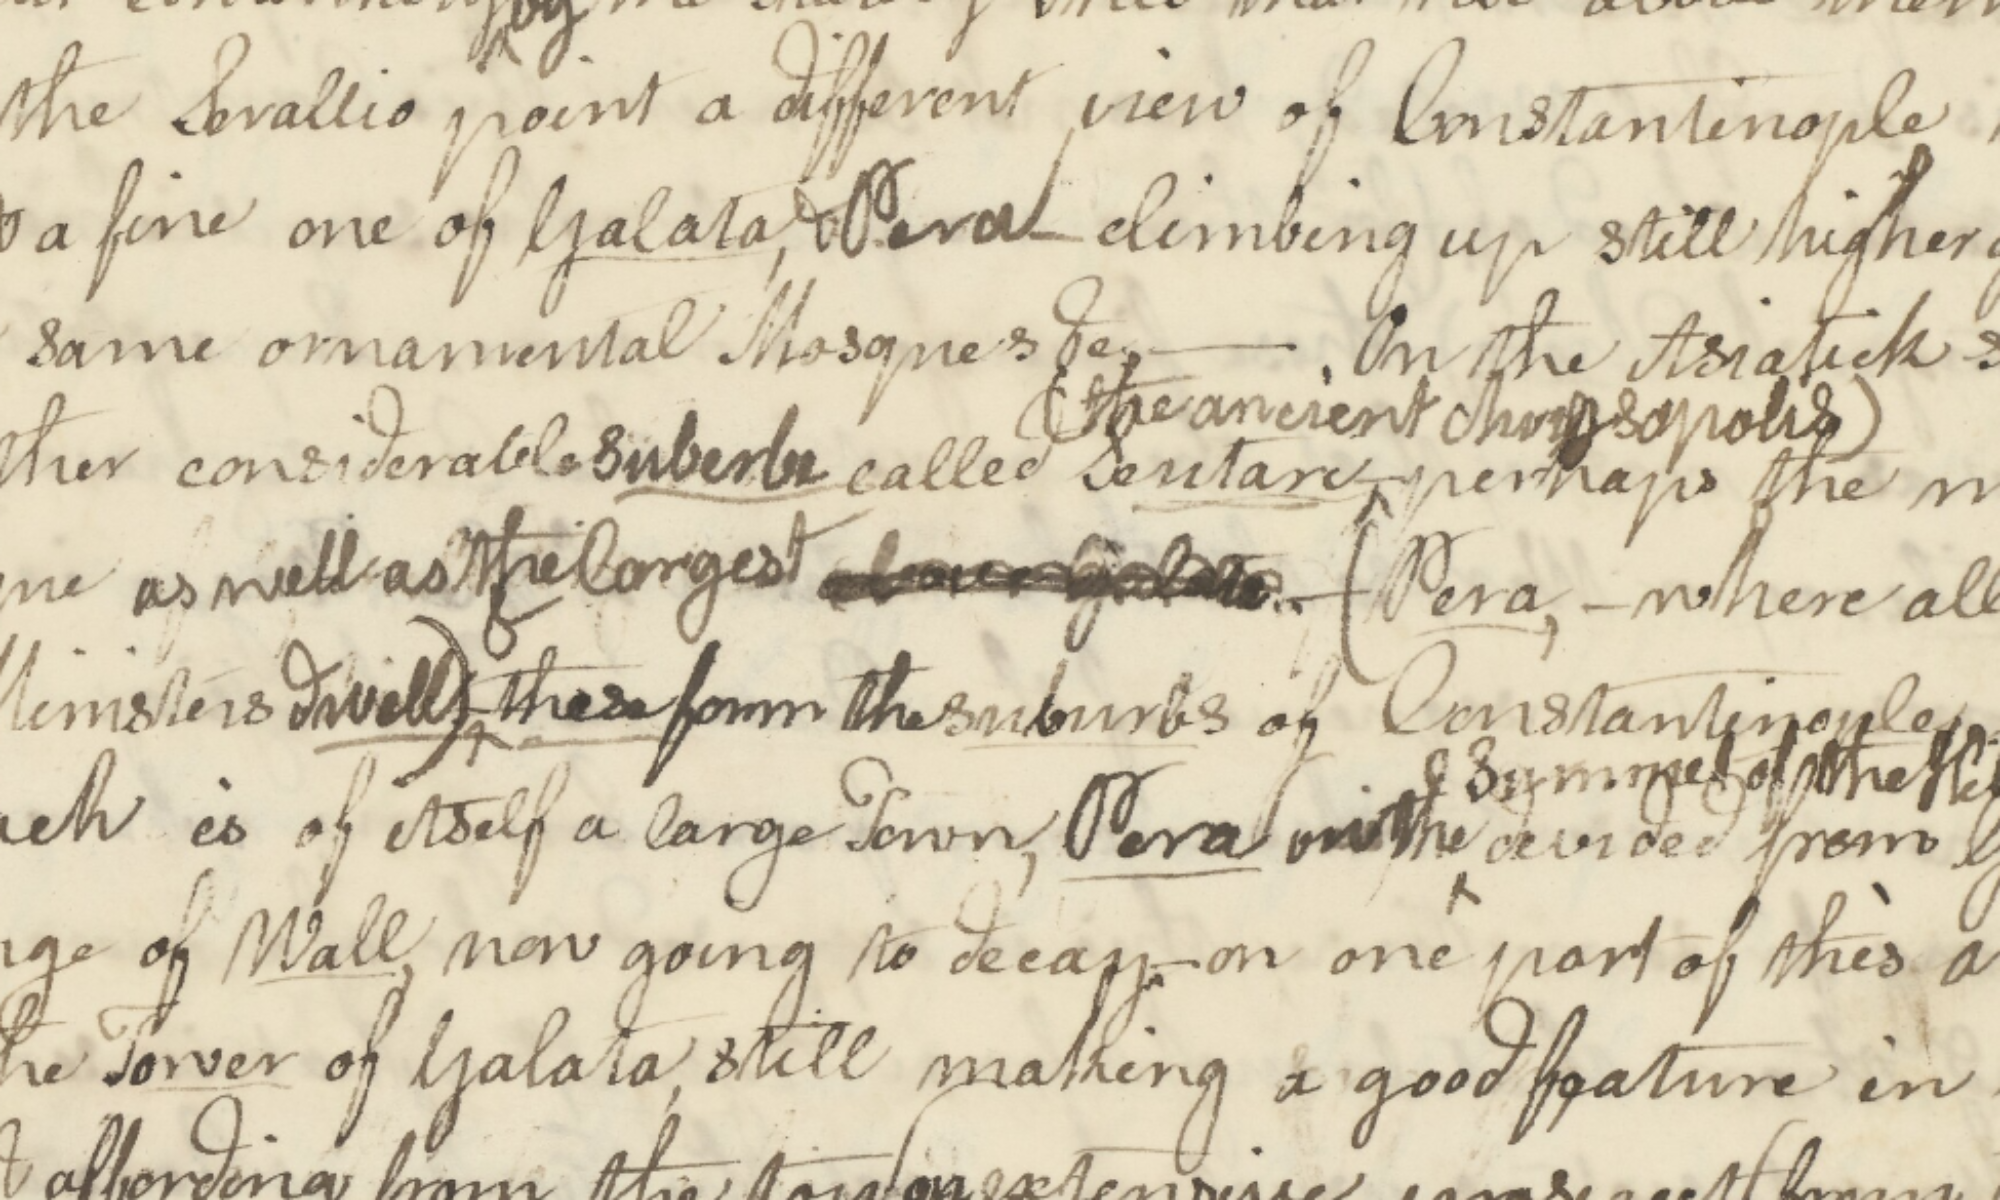 the Serallio point a different view of Constantinople
a fine one of Galata, & Pera - climbing up still higher
same ornamental Mosques &c. — . On the Asiatick
(the ancient Chrysopolis)
ther considerable suberbe called Scutari - perhaps the
as well as the largest above Galata. - (Pera, - where all
Ministers dwell) these form the suburbs of Constantinople,
& Summet of the
ach is of itself a large Town, Pera on the devided from
nge of Wall, now going to decay - on one part of this a
he Tower of Galata, still making a good feature in
affording from the top an extensive prospect from